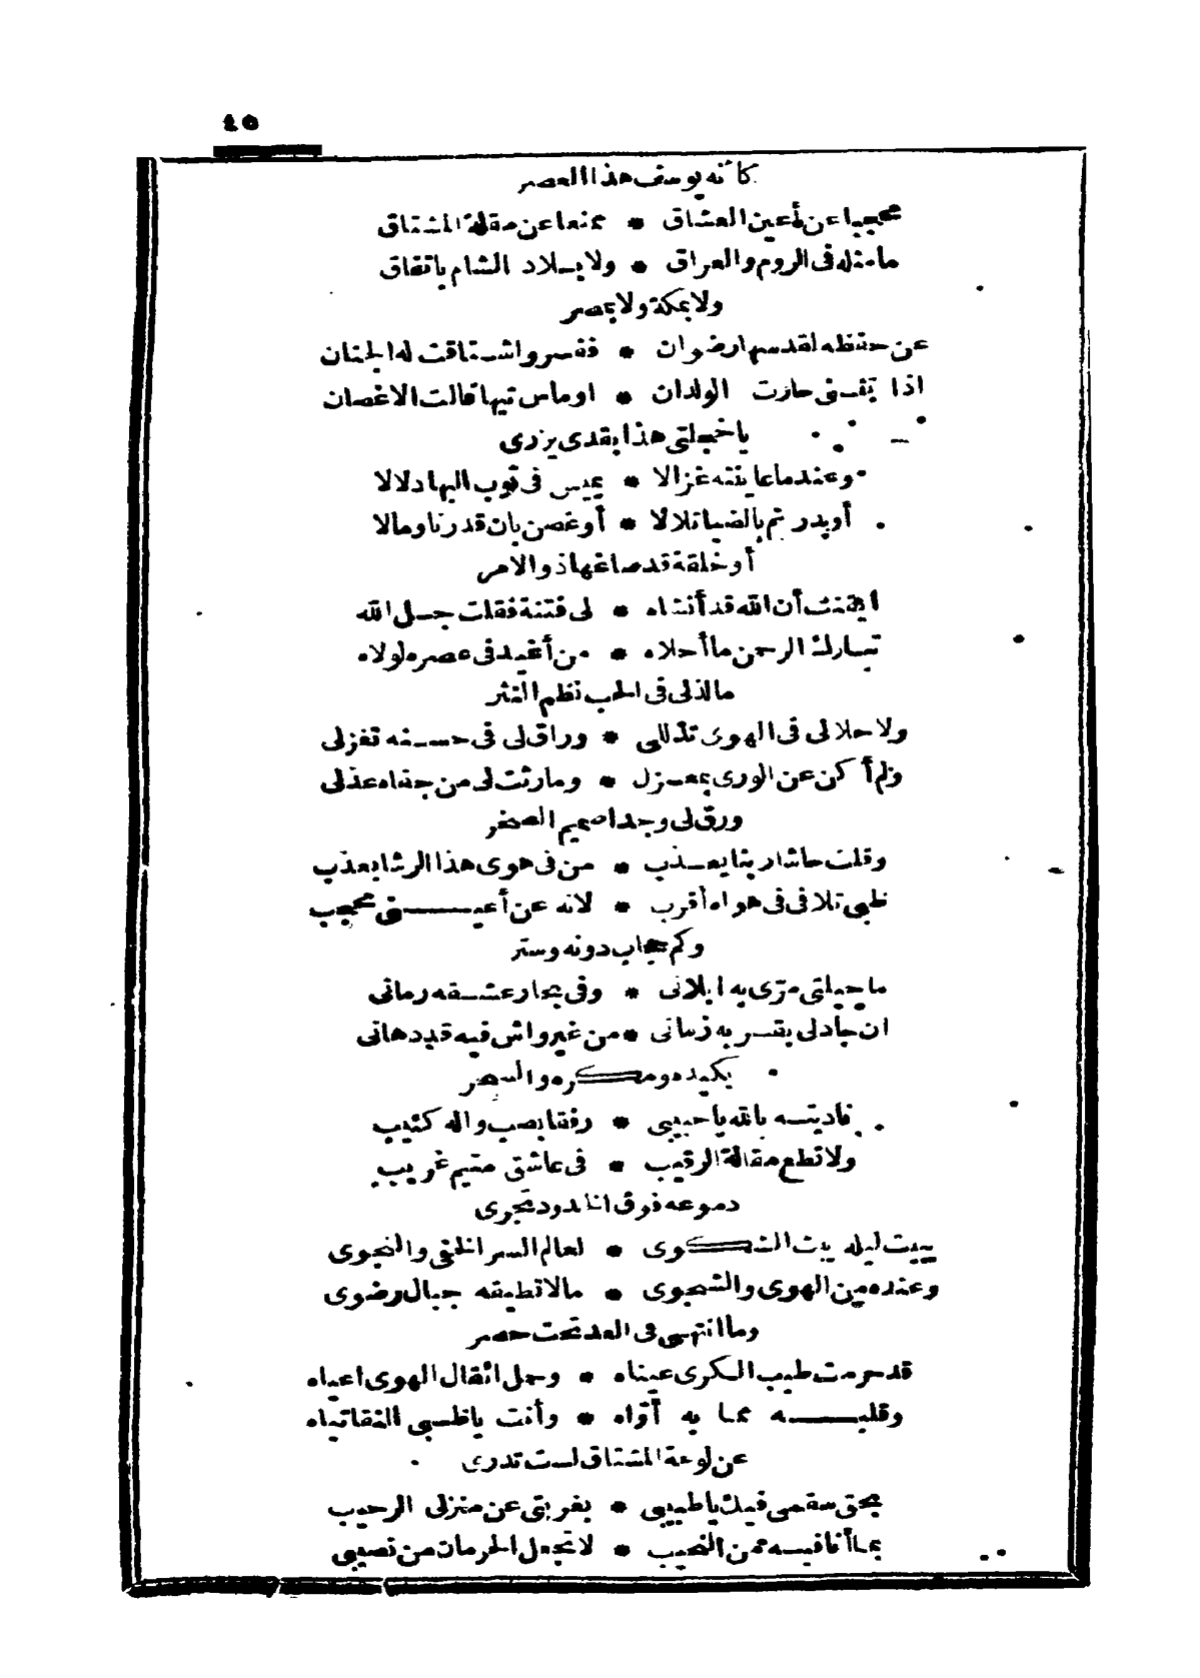 ٤٥
كأنه يوسف هذا العصر
محجبا عن أعين العشاق * ممنعا عن مقلة المشتاق
ما مثله فى الروم والعراق * ولا ببلاد الشام باتفاق
ولا بمكة ولا بمصر
عن حفظه لقد سها رضوان * ففر واشتاقت له الجنان
اذا تثنى حارت الولدان * او ماس تيها قالت الاغصان
يا خجلتى هذا بقدى يزرى
وعندما عاينته غزالا * يميس فى ثوب البها دلالا
أو بدر تم بالضيا تلالا * أو غصن بان قد رنا ومالا
أو خلقة قد صاغها ذو الامر
أيقنت أن الله قد أنشاه * لى فتنة فقلت جل الله
تبارك الرحمن ما أحلاه * من أغيد فى عصره لولاه
ما لذ لى فى الحب نظم النثر
ولا حلا لى فى الهوى تذللى * وراق لى فى حسنه تغزلى
ولم أكن عن الورى بمعزل * وما رثت لى من جفاه عذلى
ورق لى وجدا صميم الصخر
وقلت حاشا ربنا يعذب * من فى هوى هذا الرشا يعذب
ظبى تلافى فى هواه أقرب * لانه عن أعينى محجب
وكم حجاب دونه وستر
ما حيلتى مرى به ابلانى * وفى بحار عشقه رمانى
ان جاد لى بقربه زمانى * من غير واش فيه قد دهانى
بكيده ومكره والسحر
ناديته بالله يا حبيبى * رفقا بصب واله كئيب
ولا تطع مقالة الرقيب * فى عاشق متيم غريب
دموعه فوق الخدود تجرى
يبيت ليله يبث الشكوى * لعالم السر الخفى والنجوى
وعنده من الهوى والشجوى * مالا تطيقه جبال رضوى
وما انتهى فى العد تحت حصر
قد حرمت طيب الكرى عيناه * وحمل اثقال الهوى اعياه
وقلبه مما به أواه * وأنت يا ظبى النقا تياه
عن لوعة المشتاق لست تدرى
بحق سقمى فيك يا طبيبى * بغربتى عن منزلى الرحيب
بما أنا فيه من النحيب * لا تجعل الحرمان من نصيبى